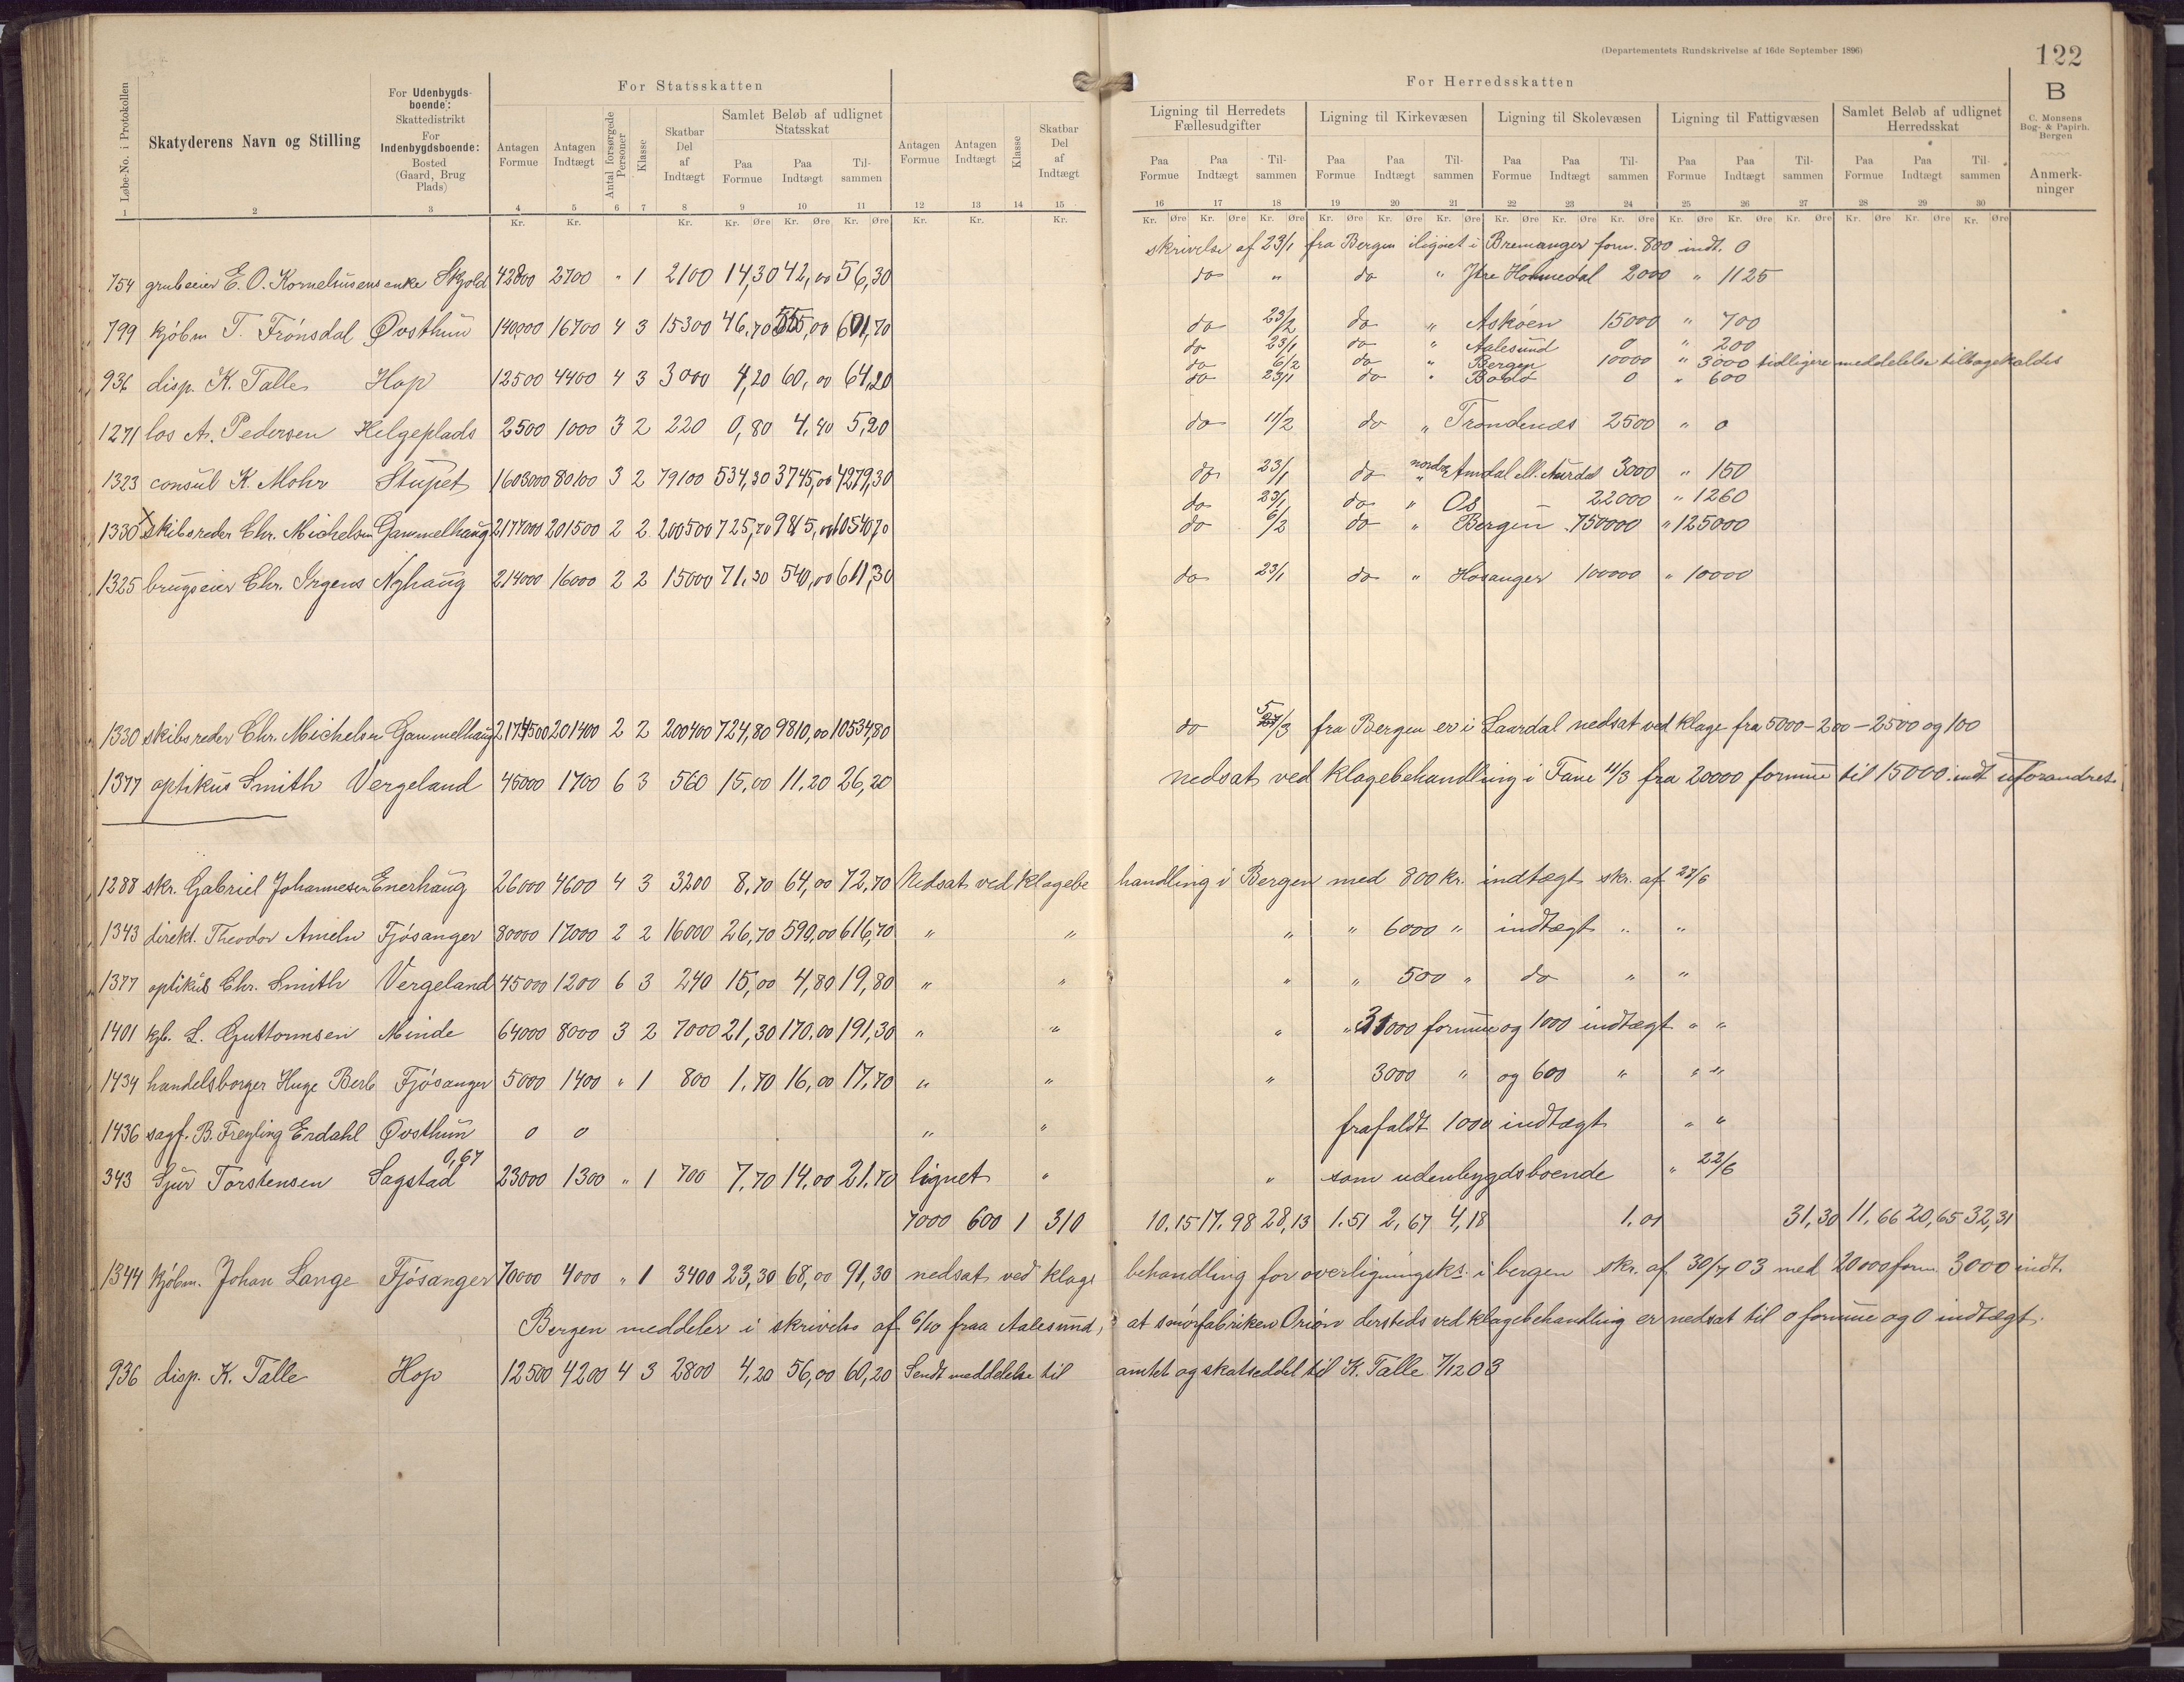 (Departementets Rundskrivelse af 16de September 1896)
122
B
C. Monsens Bog- & Papirh. Bergen
For Statsskatten
For Herredsskatten
Løbe-No. i Protokollen
Skatyderens Navn og Stilling
For Udenbygdsboende: Skattedistrikt For Indenbygdsboende: Bosted (Gaard, Brug Plads)
Antagen Formue
Antagen Indtægt
Antal forsørgede Personer
Klasse
Skatbar Del af Indtægt
Samlet Beløb af udlignet Statsskat
Paa Formue
Paa Indtægt
Tilsammen
Antagen Formue
Antagen Indtægt
Klasse
Skatbar Del af Indtægt
Ligning til Herredets Fællesudgifter
Paa Formue Paa Indtægt Tilsammen
Ligning til Kirkevæsen
Paa Formue Paa Indtægt Tilsammen
Ligning til Skolevæsen
Paa Formue Paa Indtægt Tilsammen
Ligning til Fattigvæsen
Paa Formue Paa Indtægt Tilsammen
Samlet Beløb af udlignet Herredsskat
Paa Formue Paa Indtægt Tilsammen
Anmerkninger
1 2 3 4 5 6 7 8 9 10 11 12 13 14 15 16 17 18 19 20 21 22 23 24 25 26 27 28 29 30
Kr. Kr. Kr. Kr. Øre Kr. Øre Kr. Øre Kr. Kr. Kr. Kr. Øre Kr. Øre Kr. Øre Kr. Øre Kr. Øre Kr. Øre Kr. Øre Kr. Øre Kr. Øre Kr. Øre Kr. Øre Kr. Øre Kr. Øre Kr. Øre Kr. Øre
skrivelse af 23/1 fra Bergen ilignet i Bremanger form. 800 indt. 0
754 grubeeier E. O. Korneliusens enke Skjold 42800 2700 " 1 2100 14,30 42,00 56,30 do " do " Ytre Holmedal 2000 " 1125
799 kjøbm T. Frønsdal Øvsthun 140,000 16700 4 3 15300 46,70 555,00 601,70 do 23/2 do " Askøen 15000 " 700
do 23/1 do " Aalesund 0 " 200
do 6/2 do " Bergen 10000 " 3000 tidligere meddelelse tilbagekaldes
936 disp. K. Talle Hop 12500 4400 4 3 3000 4,20 60,00 64,20 do 23/1 do " Bodø 0 " 600
1271 los A. Pedersen Helgeplads 2500 1000 3 2 220 0,80 4,40 5,20 do 11/2 do " Trondenæs 2500 " 0
1323 consul K. Mohr Stupet 1603000 80100 3 2 79100 534,30 3745,00 4279,30 do 23/1 do " nordre Aurdal 3000 " 150
do 23/1 do " Os 22000 " 1260
1330 skibsreder Chr. Michelsen Gammelhaug 2177000 201500 2 2 200500 725,70 9815,00 10540,70 do 6/2 do " Bergen 750000 " 125000
1325 brugseier Chr. Irgens Nyhaug 214000 16000 2 2 15000 71,30 540,00 611,30 do 23/1 do " Hosanger 100000 " 10000
1330 skibsreder Chr. Michelsen Gammelhaug 2174500 201400 2 2 200400 724,80 9810,00 10534,80 do 5/3 fra Bergen er i Laardal nedsat ved klage fra 5000 - 200 - 2500 og 100
1377 optikus Smith Vergeland 45000 1700 6 3 560 15,00 11,20 26,20 nedsat ved klagebehandling i Fane 11/3 fra 20000 formue til 15000 indt uforandret.
1288 skr. Gabriel Johannesen Enerhaug 26000 4600 4 3 3200 8,70 64,00 72,70 Nedsat ved klagebehandling i Bergen med 800 kr. indtægt skr. af 23/6
1343 direkt. Theodor Ameln Fjøsanger 80000 17000 2 2 16000 26,70 590,00 616,70 " " " " 6000 " indtægt " "
1377 optikus Chr. Smith Vergeland 45000 1200 6 3 240 15,00 4,80 19,80 " " " " 500 " do " "
1401 kjb. L. Guttormsen Minde 64000 8000 3 2 7000 21,30 170,00 191,30 " " " " 31000 formue og 1000 indtægt " "
1434 handelsborger Huge Berb Fjøsanger 5000 1400 " 1 800 1,70 16,00 17,70 " " " 3000 " og 600 " " "
1436 sagf. B. Freyling Erdahl Øvsthun 0 0 " " frafaldt 1000 indtægt " "
343 Sjur Torstensen Sagstad 0,67 23000 1300 " 1 700 7,70 14,00 21,70 lignet " " som udenbygdsboende " 22/6
7000 600 1 310 10,15 17,98 28,13 1,51 2,67 4,18 1,01 31,30 11,66 20,65 32,31
1344 kjøbm. Johan Lange Fjøsanger 70000 4000 " 1 3400 23,30 68,00 91,30 nedsat ved klagebehandling for overligningsks. i bergen skr. af 30/7 03 med 20000 form. 3000 indt.
Bergen meddeler i skrivelse af 6/10 fraa Aalesund, at smørfabriken Orion dersteds ved klagebehandling er nedsat til 0 formue og 0 indtægt.
936 disp. K. Talle Hop 12500 4200 4 3 2800 4,20 56,00 60,20 Sendt meddelelse til amtet og skatseddel til K. Talle 7/12 03